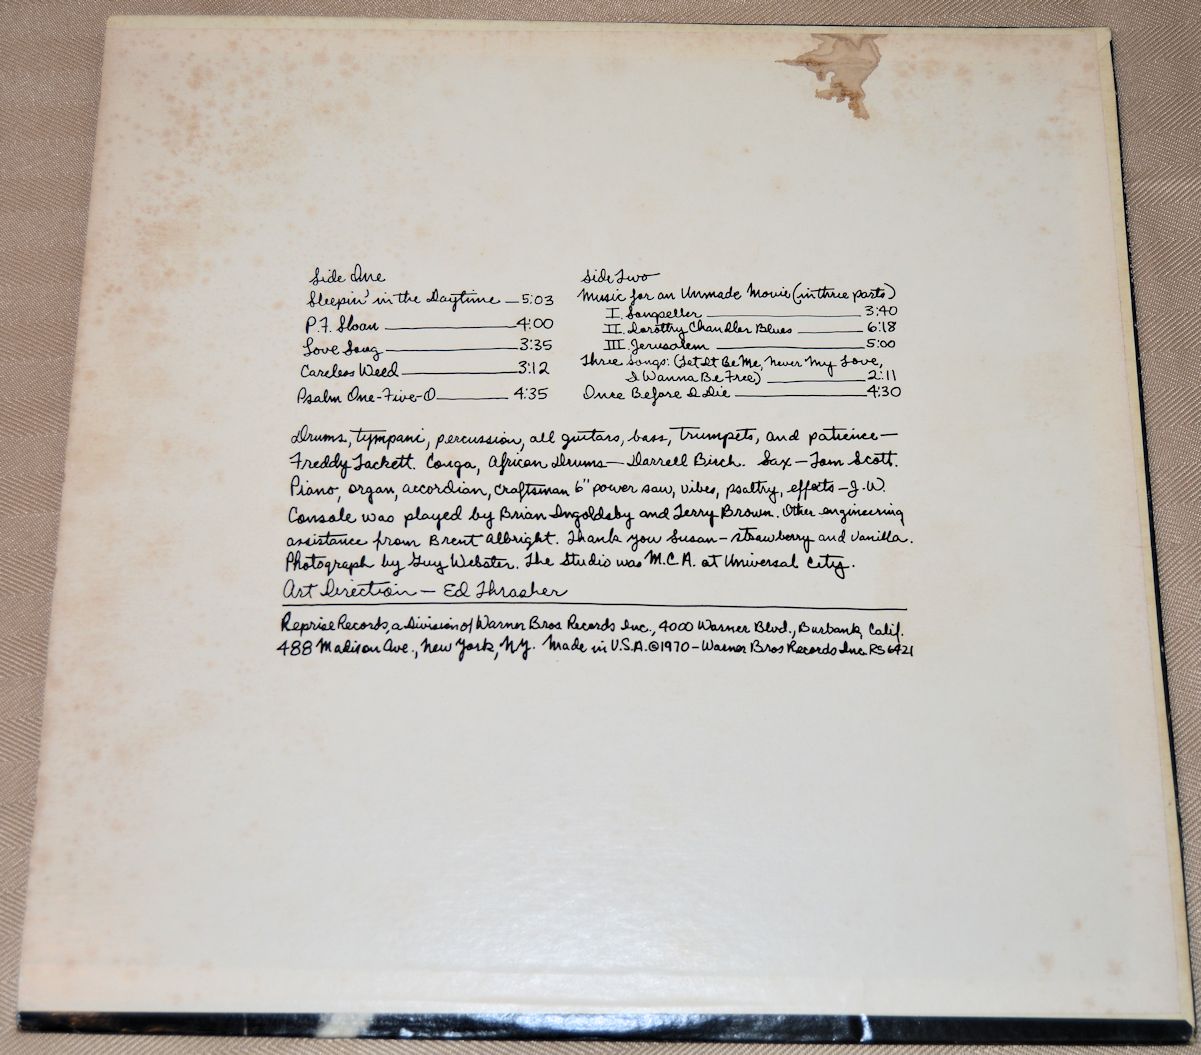 Side One
Sleepin' in the Daytime — 5:03
P.F. Sloan — 4:00
Love Song — 3:35
Careless Weed — 3:12
Psalm One-Five-O — 4:35
Side Two
Music for an Unmade Movie (in three parts)
I. Songseller — 3:40
II. Dorothy Chandler Blues — 6:18
III. Jerusalem — 5:00
Three songs: (Let It Be Me, Never My Love,
I Wanna Be Free) — 2:11
Once Before I Die — 4:30
Drums, tympani, percussion, all guitars, bass, trumpets, and patience —
Freddy Tackett. Conga, African Drums — Darrell Birch. Sax — Tom Scott.
Piano, organ, accordian, craftsman 6" power saw, vibes, psaltry, effects — J.W.
Console was played by Brian Ingoldsby and Terry Brown. Other engineering
assistance from Brent Albright. Thank you Susan — strawberry and vanilla.
Photograph by Guy Webster. The Studio was M.C.A. at Universal City.
Art Direction — Ed Thrasher
Reprise Records, a Division of Warner Bros Records Inc., 4000 Warner Blvd., Burbank, Calif.
488 Madison Ave., New York, N.Y. Made in U.S.A. © 1970 - Warner Bros Records Inc. RS 6421